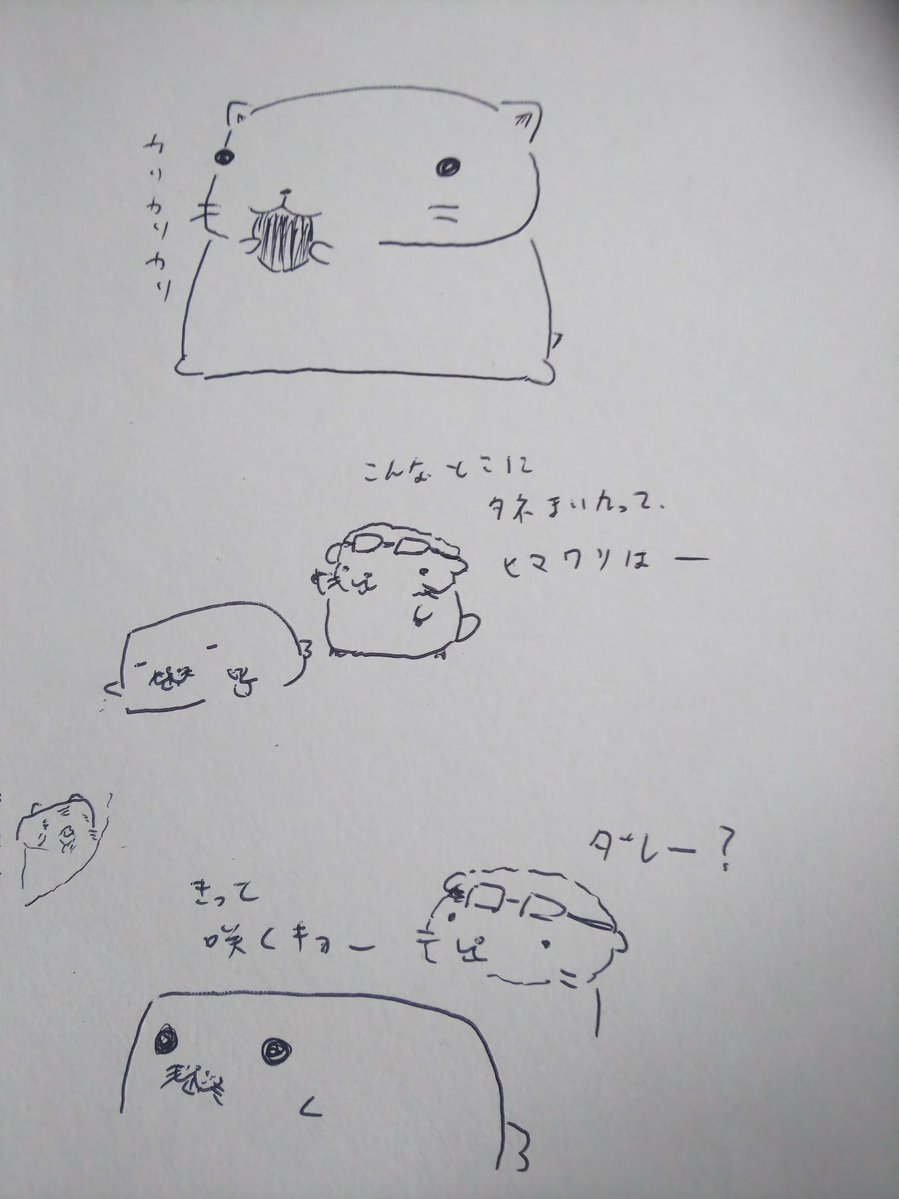 カリカリカリ
こんなとこに
タネまいたって、
ヒマワリはー
ダレー?
きって
咲くキョー